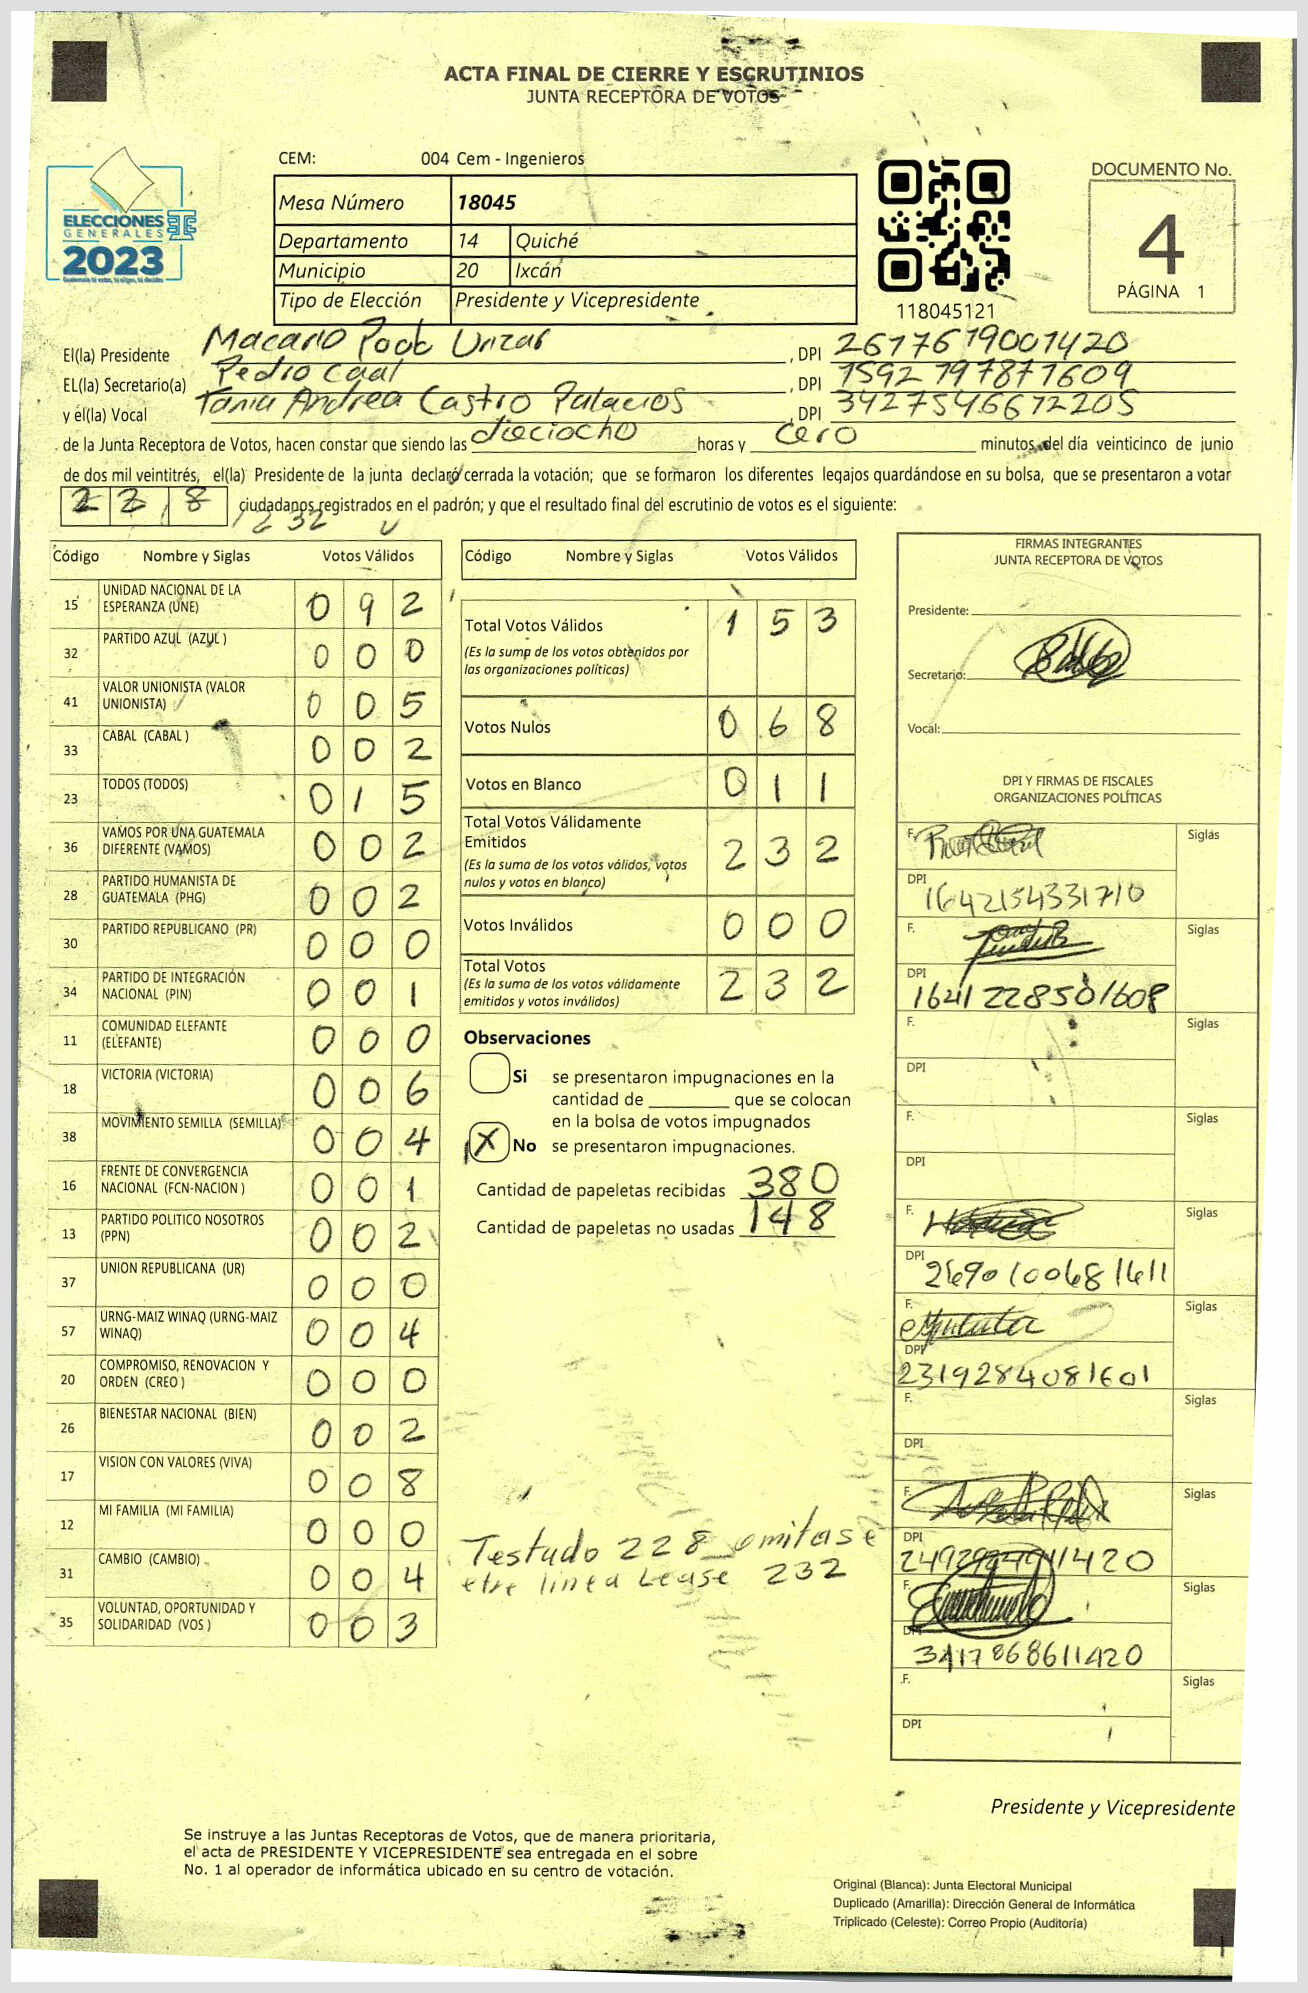 ACTA FINAL DE CIERRE Y ESCRUTINIOS
JUNTA RECEPTORA DE VOTOS
ELECCIONES
GENERALES
2023
CEM: 004 Cem - Ingenieros
Mesa Número 18045
Departamento 14 Quiché
Municipio 20 Ixcán
Tipo de Elección Presidente y Vicepresidente
118045121
DOCUMENTO No.
4
PÁGINA 1
El(la) Presidente Macario Poob Urizar, DPI 2617619001420
EL(la) Secretario(a) Pedro Caal, DPI 1592197871609
y el(la) Vocal Tania Andrea Castro Palacios, DPI 3427546672205
de la Junta Receptora de Votos, hacen constar que siendo las dieciocho horas y cero minutos del día veinticinco de junio
de dos mil veintitrés, el(la) Presidente de la junta declaró cerrada la votación; que se formaron los diferentes legajos guardándose en su bolsa, que se presentaron a votar
228 ciudadanos registrados en el padrón; y que el resultado final del escrutinio de votos es el siguiente:
232
Código Nombre y Siglas Votos Válidos
15 UNIDAD NACIONAL DE LA ESPERANZA (UNE) 092
32 PARTIDO AZUL (AZUL ) 000
41 VALOR UNIONISTA (VALOR UNIONISTA) 005
33 CABAL (CABAL ) 002
23 TODOS (TODOS) 015
36 VAMOS POR UNA GUATEMALA DIFERENTE (VAMOS) 002
28 PARTIDO HUMANISTA DE GUATEMALA (PHG) 002
30 PARTIDO REPUBLICANO (PR) 000
34 PARTIDO DE INTEGRACIÓN NACIONAL (PIN) 001
11 COMUNIDAD ELEFANTE (ELEFANTE) 000
18 VICTORIA (VICTORIA) 006
38 MOVIMIENTO SEMILLA (SEMILLA) 004
16 FRENTE DE CONVERGENCIA NACIONAL (FCN-NACION ) 001
13 PARTIDO POLITICO NOSOTROS (PPN) 002
37 UNION REPUBLICANA (UR) 000
57 URNG-MAIZ WINAQ (URNG-MAIZ WINAQ) 004
20 COMPROMISO, RENOVACION Y ORDEN (CREO ) 000
26 BIENESTAR NACIONAL (BIEN) 002
17 VISION CON VALORES (VIVA) 008
12 MI FAMILIA (MI FAMILIA) 000
31 CAMBIO (CAMBIO) 004
35 VOLUNTAD, OPORTUNIDAD Y SOLIDARIDAD (VOS ) 003
Código Nombre y Siglas Votos Válidos
Total Votos Válidos 153
(Es la suma de los votos obtenidos por
las organizaciones políticas)
Votos Nulos 068
Votos en Blanco 011
Total Votos Válidamente
Emitidos 232
(Es la suma de los votos válidos, votos
nulos y votos en blanco)
Votos Inválidos 000
Total Votos 232
(Es la suma de los votos válidamente
emitidos y votos inválidos)
Observaciones
Si se presentaron impugnaciones en la
cantidad de ________ que se colocan
en la bolsa de votos impugnados
X No se presentaron impugnaciones.
Cantidad de papeletas recibidas 380
Cantidad de papeletas no usadas 148
Testado 228 omitase
etre linea Lease 232
FIRMAS INTEGRANTES
JUNTA RECEPTORA DE VOTOS
Presidente:
Secretario:
Vocal:
DPI Y FIRMAS DE FISCALES
ORGANIZACIONES POLÍTICAS
F. Siglas
DPI 1642154331710
F. Siglas
DPI 1641228501609
F. Siglas
DPI
F. Siglas
DPI
F. Siglas
DPI 2690100681611
F. Siglas
DPI 2319284081601
F. Siglas
DPI
F. Siglas
DPI
F. Siglas
DPI 3417868611420
F. Siglas
DPI
Presidente y Vicepresidente
Se instruye a las Juntas Receptoras de Votos, que de manera prioritaria,
el acta de PRESIDENTE Y VICEPRESIDENTE sea entregada en el sobre
No. 1 al operador de informática ubicado en su centro de votación.
Original (Blanca): Junta Electoral Municipal
Duplicado (Amarilla): Dirección General de Informática
Triplicado (Celeste): Correo Propio (Auditoría)